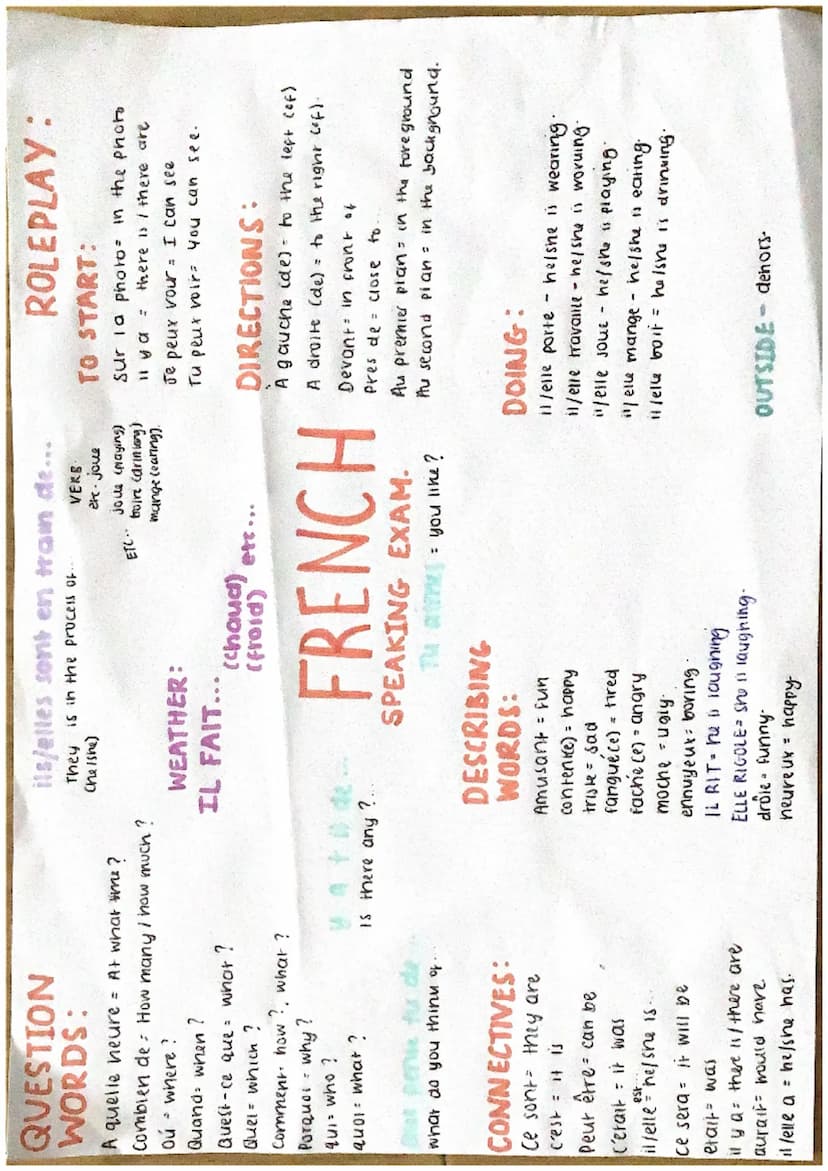 QUESTION
WORDS:
A quelle heure = At what time?
Combien de = How many / how much?
Oú = where?
Quand = when?
Quest-ce que = what?
Quel = which?
Comment = how?, what?
Porquoi = why?
qui = who?
quoi = what?
Que pense tu de...
what do you think of...
CONNECTIVES:
Ce sont = they are
c'est = it is
Peut être = can be
C'etait = it was
il/elle est = he/she is...
Ce sera = it will be
etait = was
il y a = there is / there are
aurait = would have
il/elle a = he/she has.
ils/elles sont en train de...
They is in the process of...
(he/she)
VERB
etc. joue
ETC.. joue (playing)
boire (drinking)
mange (eating).
WEATHER:
IL FAIT...
(chaud)
(froid) etc...
y a t il de...
Is there any?...
FRENCH
SPEAKING EXAM.
Tu aimes = you like?
DESCRIBING
WORDS:
Amusant = fun
content(e) = happy
triste = sad
fatigué(e) = tired
faché(e) = angry
moche = ugly
ennuyeux = boring.
IL RIT = he is laughing
ELLE RIGOLE = she is laughing.
drôle = funny.
heureux = happy.
ROLEPLAY:
TO START:
Sur la photo = in the photo
il y a = there is / there are
Je peux voir = I can see
Tu peux voir = You can see.
DIRECTIONS:
À gauche (de) = to the left (of)
A droite (de) = to the right (of).
Devant = in front of
Pres de = close to...
Au premier plan = in the foreground
Au second plan = in the background.
DOING:
il/elle porte - he/she is wearing.
il/elle travaille - he/she is working.
il/elle joue - he/she is playing.
il/elle mange - he/she is eating.
il/elle boit = he/she is drinking.
OUTSIDE - dehors.